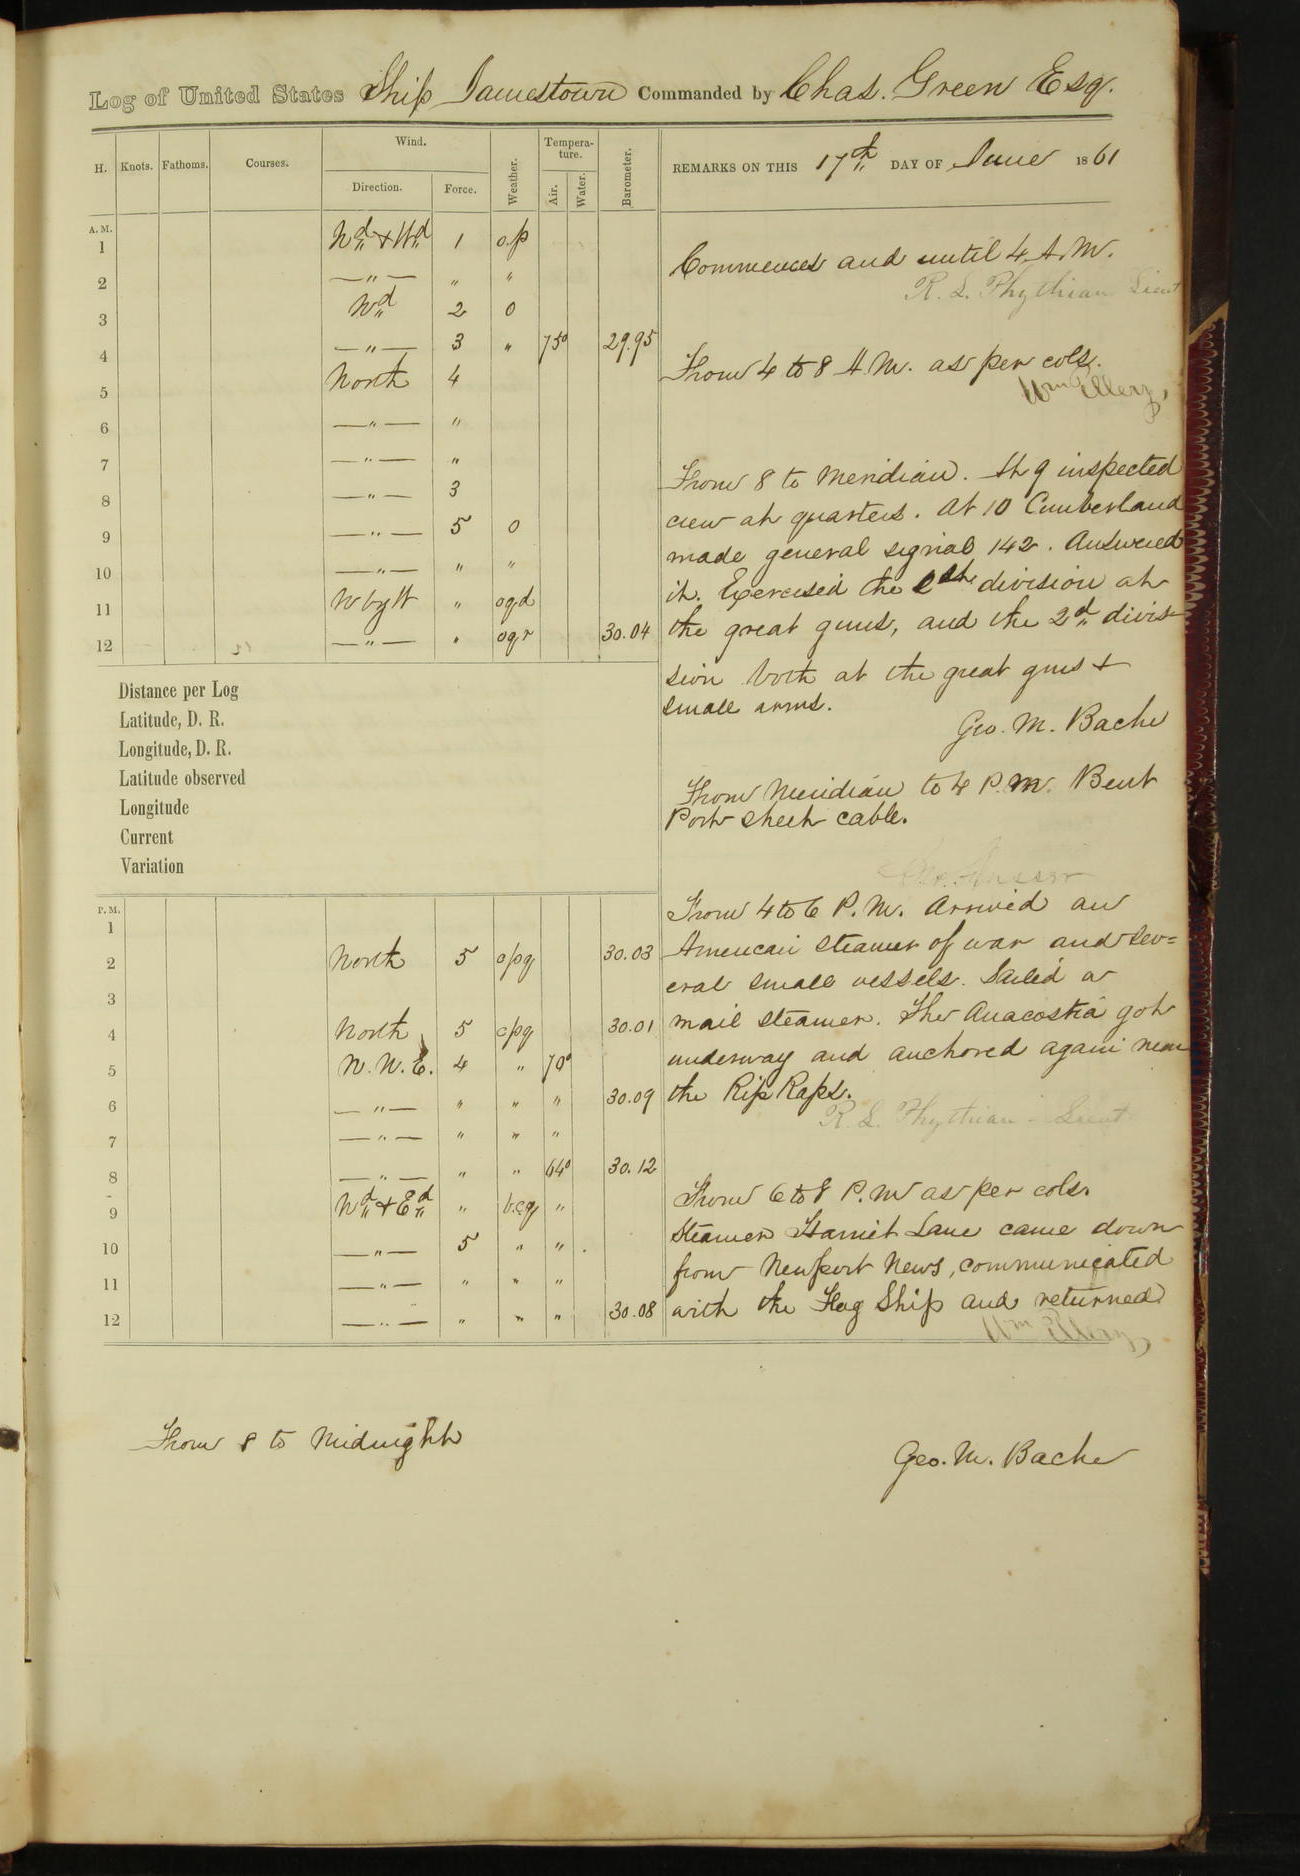 Log of United States Ship Jamestown Commanded by Chas. Green Esq.
H. Knots. Fathoms. Courses. Wind. Direction. Force. Weather. Tempera-ture. Air. Water. Barometer. REMARKS ON THIS 17th DAY OF June 1861
A.M.
1 Nd + Wd 1 o.p
2 —"— " "
3 Wd 2 o
4 —"— 3 " 75° 29.95
5 North 4
6 —"— "
7 —"— "
8 —"— 3
9 —"— 5 o
10 —"— " "
11 N by W " ogd
12 —"— " ogr 30.04
Commences and until 4 A.M.
R. L. Phythian Lieut
From 4 to 8 A.M. as per cols.
Wm Ellery
From 8 to Meridian. At 9 inspected
crew at quarters. At 10 Cumberland
made general signal 142. Answered
it. Exercised the 1st division at
the great guns, and the 2d divis-
sion both at the great guns +
small arms.
Geo. M. Bache
From Meridian to 4 P.M. Bent
Port sheet cable.
Distance per Log
Latitude, D. R.
Longitude, D. R.
Latitude observed
Longitude
Current
Variation
P.M.
1
2 North 5 opq 30.03
3
4 North 5 cpq 30.01
5 N.N.E. 4 " 70°
6 —"— " " " 30.09
7 —"— " " "
8 —"— " " 64° 30.12
9 Nd + Ed " b.c.q "
10 —"— 5 " "
11 —"— " " "
12 —"— " " " 30.08
From 4 to 6 P.M. Arrived an
American steamer of war and sev=
eral small vessels. Sailed a
mail steamer. The Anacostia got
underway and anchored again near
the Rip Raps.
R. L. Phythian - Lieut
From 6 to 8 P.M as per cols.
Steamer Harriet Lane came down
from Newport News, communicated
with the Flag Ship and returned
Wm Ellery
From 8 to Midnight
Geo. M. Bache